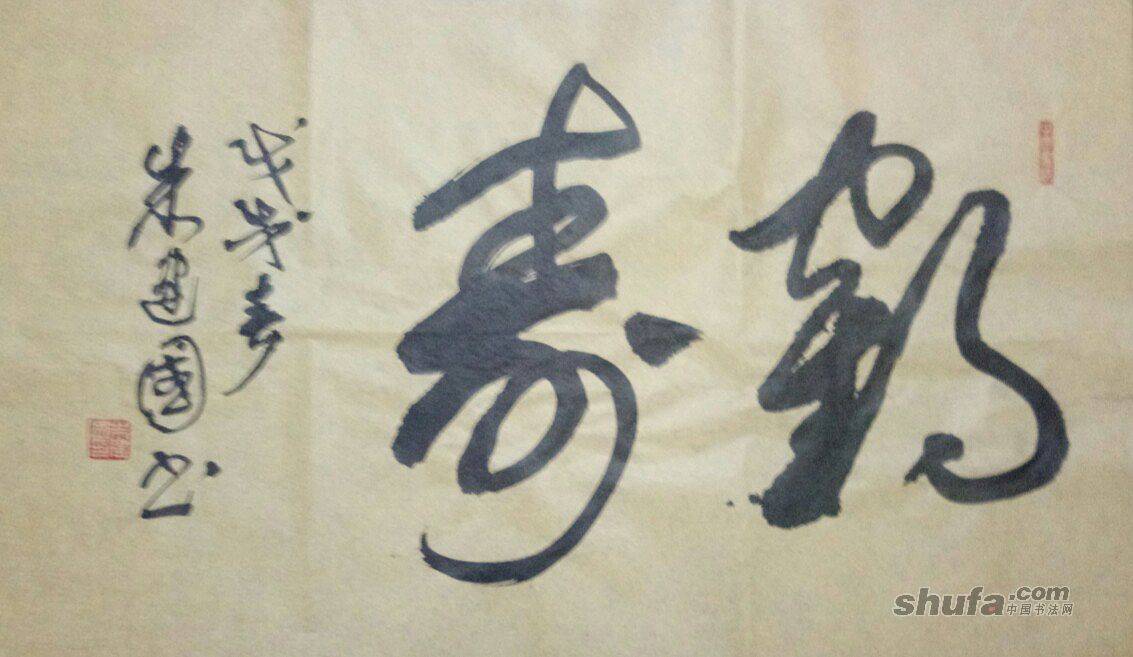 鹤寿
戊戌春
朱建國书
shufa.com
中国书法网